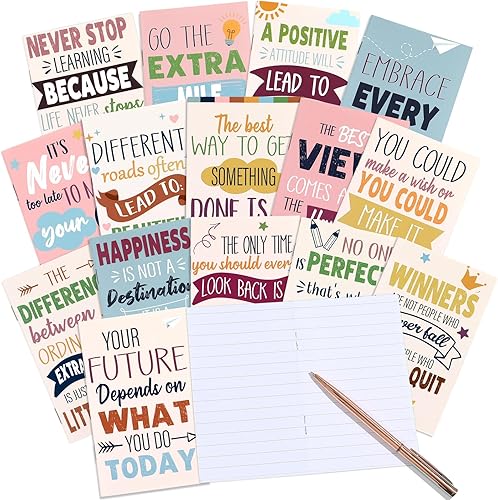 NEVER STOP
LEARNING
BECAUSE
LIFE NEVER stops
GO THE
EXTRA
MILE
A POSITIVE
ATTITUDE WILL
LEAD TO
EMBRACE
EVERY
IT'S
Never
too late TO
your
DIFFERENT
roads often
LEAD TO:
BEAUTIFUL
The best
WAY TO GET
SOMETHING
DONE IS
THE BEST
VIEW
COMES
THE
YOU COULD
make a wish or
YOU COULD
MAKE IT
THE
DIFFERENCE
between
ORDIN
EXTRA
IS JUST
LITT
HAPPINESS
IS NOT A
Destination
IT IS A
THE ONLY TIME
you should ever
LOOK BACK IS
NO ONE
IS
PERFECT
that's why
WINNERS
ARE NOT PEOPLE WHO
never fail
PEOPLE WHO
QUIT
YOUR
FUTURE
Depends on
WHAT
YOU DO
TODAY